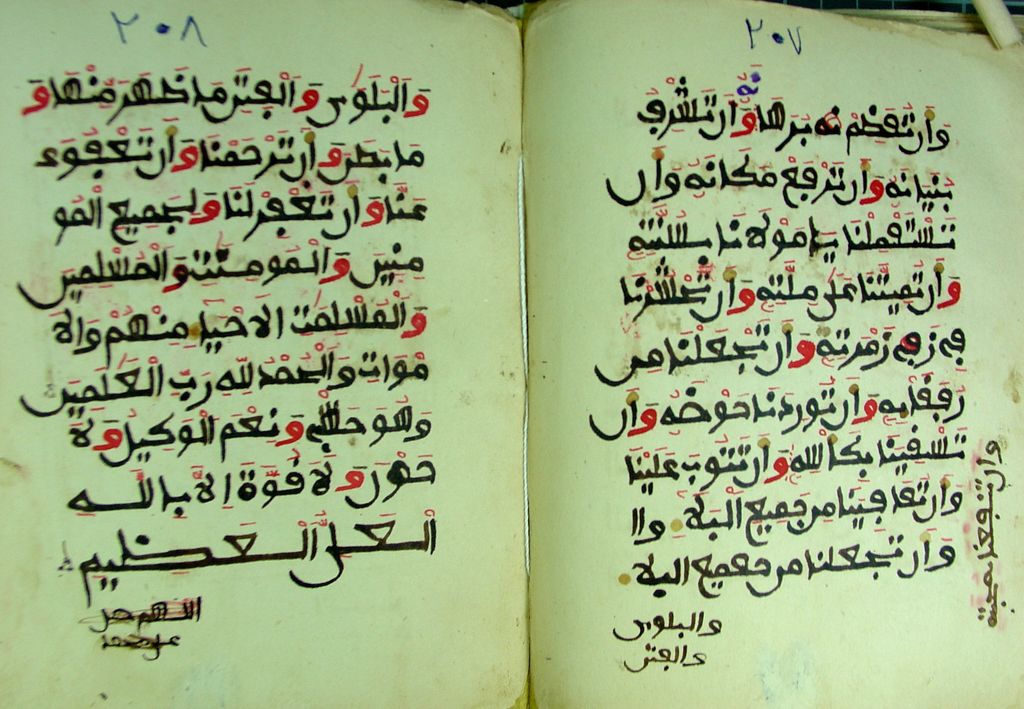 ٢٠٧
وان تعظم نه برها وان تشرف
بنيانه وان ترفع مكانه وان
تستعملنا يا مولانا بسنته
وان تميتنا على ملته وان تحشرنا
في زمرته وان تجعلنا من
رفقايه وان توردنا حوضه وان
تسقينا بكاسه وان تتوب علينا
وان تعافينا من جميع البلا وال
وان تجعلنا من جميع البلا
والبلوى
والفتن
وان تنفعنا بمحبته
٢٠٨
والبلوى والفتن ما ظهر منها و
ما بطن وان ترحمنا وان تعفوا
عنا وان تغفر لنا ولجميع المو
منين والمومنت والمسلمين
والمسلمت الاحيا منهم والا
موات والحمد لله رب العلمين
وهو حسبي ونعم الوكيل ولا
حول ولا قوة الا بالله
العلي العظيم
اللهم صل
على محمد